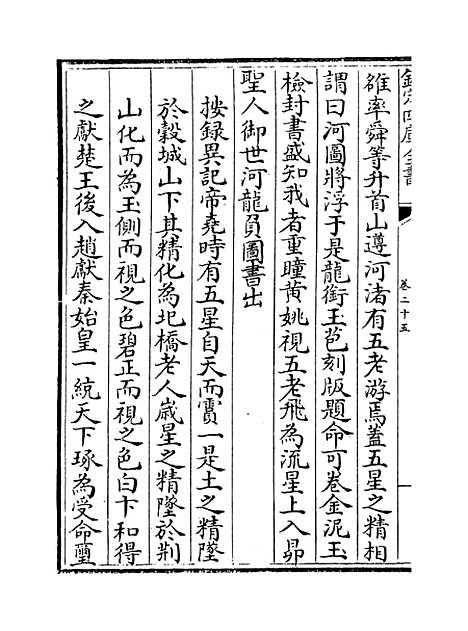 欽定四庫全書
卷二十五
雒率舜等升首山遵河渚有五老游焉蓋五星之精相
謂曰河圖將浮于是龍銜玉苞刻版題命可卷金泥玉
檢封書盛知我者重瞳黄姚視五老飛為流星上入昴
聖人御世河龍負圖書出
按録異記帝堯時有五星自天而霣一是土之精墜
於穀城山下其精化為圯橋老人嵗星之精墜於荆
山化而為玉側而視之色碧正而視之色白卞和得
之獻楚王後入趙獻秦始皇一統天下琢為受命璽